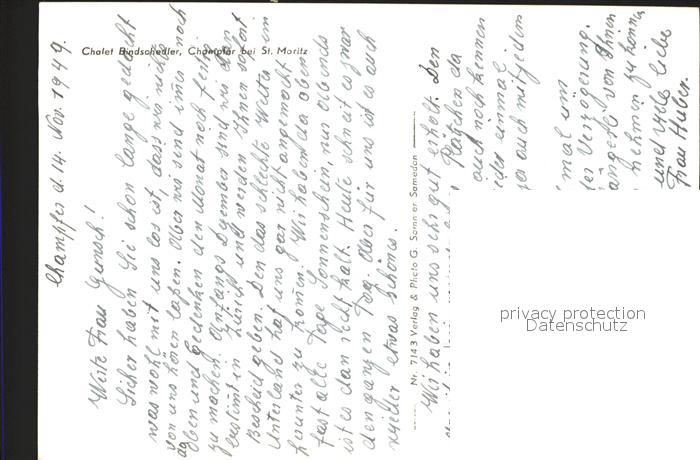 Chalet Bindschedler, Champfèr bei St. Moritz
Champfer d. 14. Nov. 1949.
Werte Frau Gunsch!
Sicher haben Sie schon lange gedacht
was wohl mit uns los ist, dass wir nichts
von uns hören lassen. Aber wir sind imer noch
da
oben und gedenken den Monat noch fertig
zu machen. Anfangs Dezember sind wir dan
bestimt in Zürich und werden Ihnen sofort
Bescheid geben. Den das schlechte Wetter im
Unterland hat uns gar nicht angemacht
herunter zu komen. Wir haben da oben
fast alle Tage Sonnenschein, nur Abends
ist es dan recht kalt. Heute schneit es zwar
den ganzen Tag. Aber für uns ist es auch
wieder etwas schönes.
Nr. 7143 Verlag & Photo G. Sommer Samedan
Wir haben uns sehr gut erholt. Den
Plätzchen da
auch noch kennen
wieder einmal
auch mit jedem
mal um
Verzögerung.
von Ihnen
nehmen zu könne
und viele liebe
Frau Huber.
privacy protection
Datenschutz